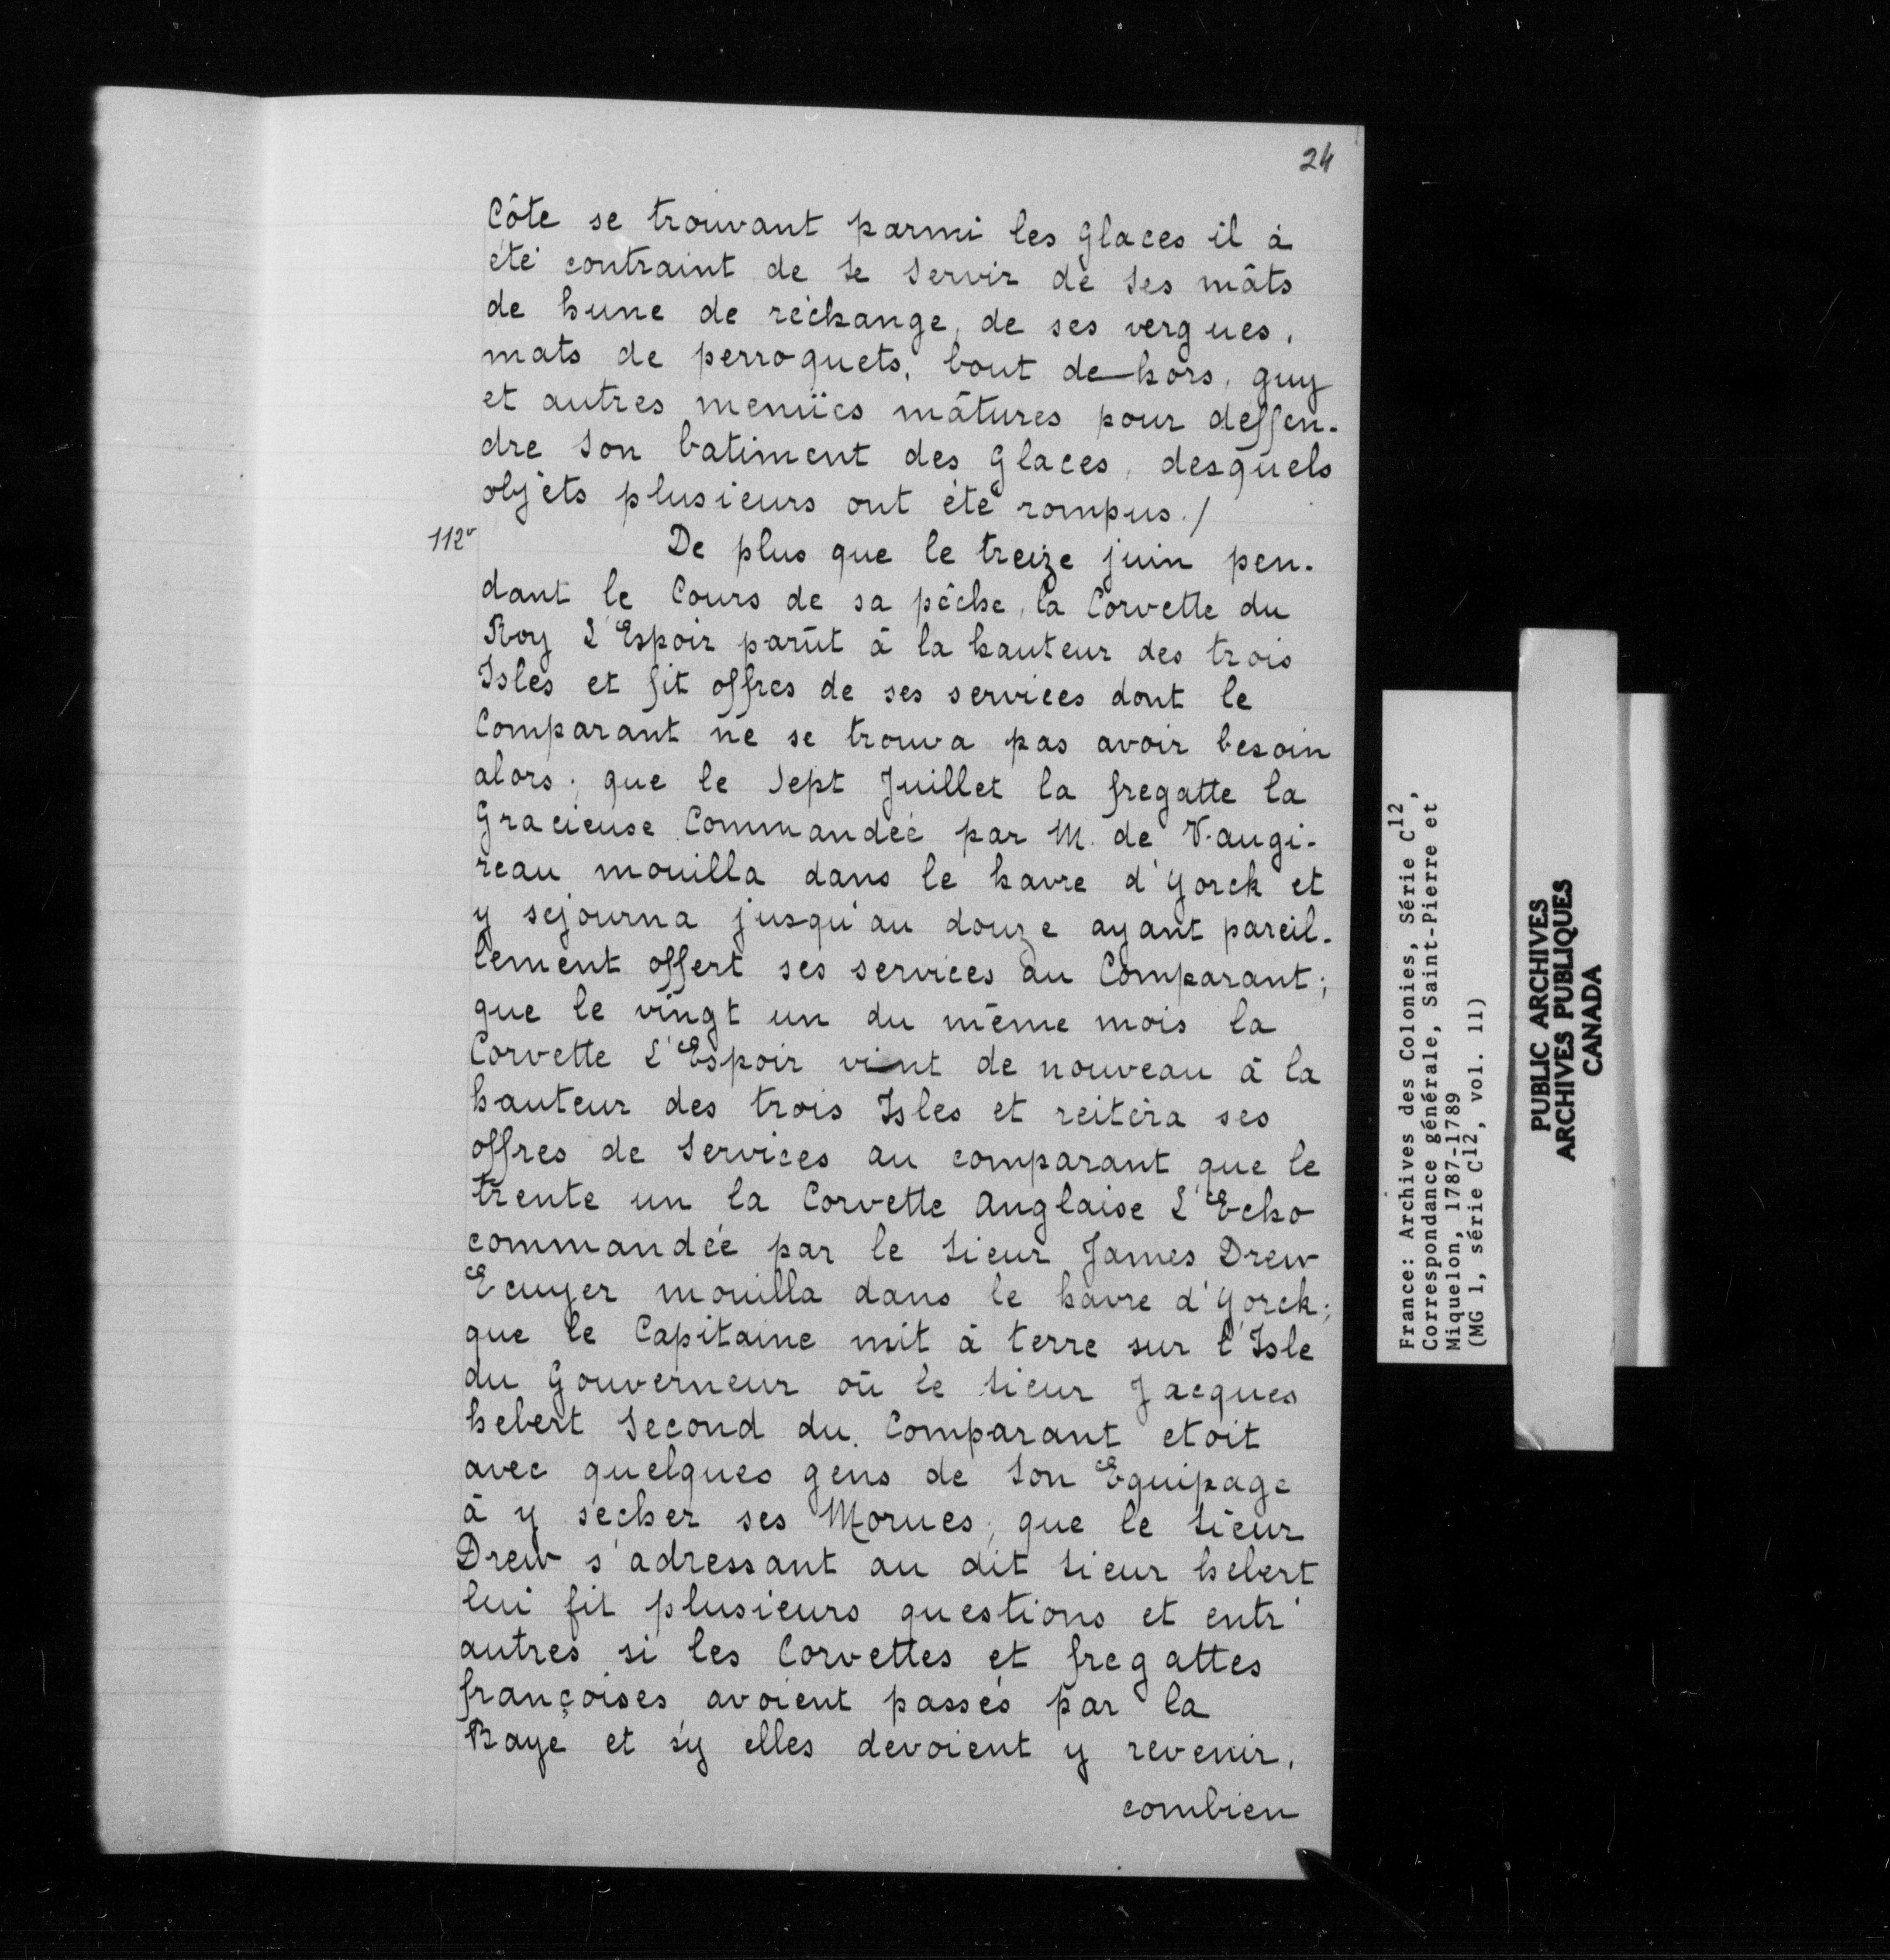 24
Côte se trouvant parmi les glaces il à
été contraint de se servir de ses mâts
de hune de réchange, de ses vergues,
mats de perroquets, bout de-hors, guy
et autres menuïes mâtures pour deffen-
dre son batiment des glaces, desquels
objets plusieurs ont été rompus./
112v
De plus que le treize juin pen-
dant le Cours de sa pêche, la Corvette du
Roy L'Espoir parût à la hauteur des trois
Isles et fit offres de ses services dont le
Comparant ne se trouva pas avoir besoin
alors; que le Sept Juillet la fregatte la
Gracieuse Commandée par M. de Vaugi-
reau mouilla dans le havre d'Yorck et
y sejourna jusqu'au douze ayant pareil-
lement offert ses services au Comparant;
que le vingt un du même mois la
Corvette L'Espoir vint de nouveau à la
hauteur des trois Isles et reitéra ses
offres de Services au comparant que le
trente un la Corvette anglaise L'Echo
commandée par le Sieur James Drew
Ecuyer mouilla dans le havre d'Yorck;
que le Capitaine mit à terre sur l'Isle
du Gouverneur où le Sieur Jacques
hebert Second du Comparant etoit
avec quelques gens de son Equipage
à y sécher ses Morues; que le Sieur
Drew s'adressant au dit Sieur hebert
lui fit plusieurs questions et entr'
autres si les Corvettes et fregattes
françoises avoient passés par la
Baye et sy elles devoient y revenir,
combien
France: Archives des Colonies, Série C12,
Correspondance générale, Saint-Pierre et
Miquelon, 1787-1789
(MG 1, série C12, vol. 11)
PUBLIC ARCHIVES
ARCHIVES PUBLIQUES
CANADA